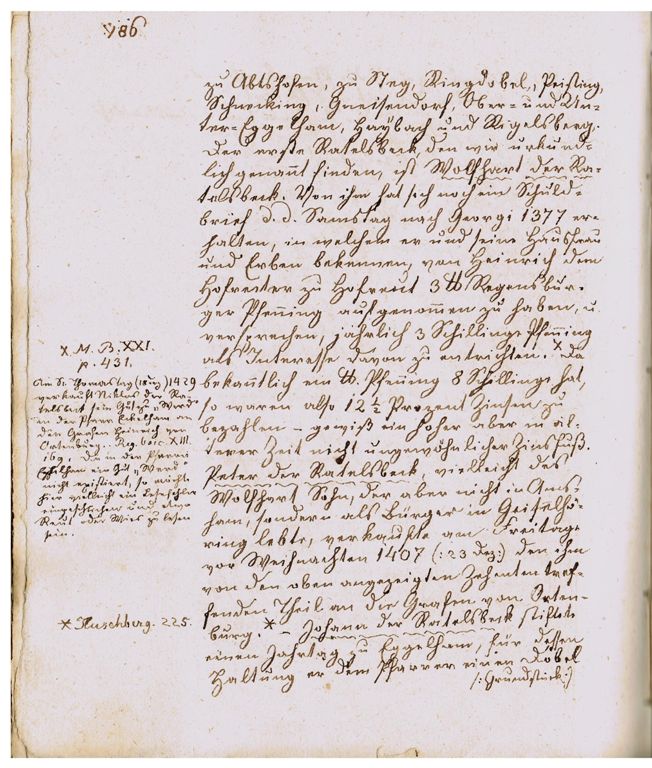 186
zu Abtshofen, zu Steg, Ringdobel, Peisting,
Schwecking, Gneisendorf, Ober- und Un-
ter-Eggelham, Haybach und Rigelsberg.
Der erste Ratelsbeck den wir urkund-
lich genannt finden, ist Wolfhart der Ra-
telsbeck. Von ihm hat sich noch ein Schuld-
brief d. d. Samstag nach Georgi 1377 er-
halten, in welchem er und seine Hausfrau
und Erben bekennen, von Heinrich dem
Hofreiter zu Hofreut 3 ℔ Regensbur-
ger Pfenning aufgenommen zu haben, u.
versprechen, jährlich 3 Schillinge Pfenning
als Interesse davon zu entrichten. × Da
bekantlich ein ℔. Pfenning 8 Schillinge hat,
so waren also 12 ½ Prozent Zinsen zu
bezahlen – gewiß ein hoher aber in äl-
terer Zeit nicht ungewöhnlicher Zinsfuß.
Peter der Ratelsbeck, vielleicht des
Wolfhart Sohn, der aber nicht in Ams-
ham, sondern als Bürger in Geiselhö-
ring lebte, verkaufte am Freitage
vor Weihnachten 1407 (: 23 Dez:) den ihm
von den oben angezeigten Zehenten tref-
fenden Theil an die Grafen von Orten-
burg. * – Johann der Ratelsbeck stiftete
einen Jahrtag zu Eggelham, für dessen
Haltung er dem Pfarrer einen Dobel
/: Grundstück :/
× M. B. XXI.
p. 431.
Am St. Thomastag 1429
verkauft Niklas der Ra-
telsbeck sein Gut zu "Werd"
in der Pfarr Eckelham an
den Grafen Heinrich von
Ortenburg. Reg. boic. XIII.
169. Da in der Pfarrei
Egglham ein Gut "Werd"
nicht existiert, so möchte
hier vielleicht ein Lesefehler
eingeschlichen und etwa
Reut oder Wies zu lesen
sein.
* Huschberg. 225.